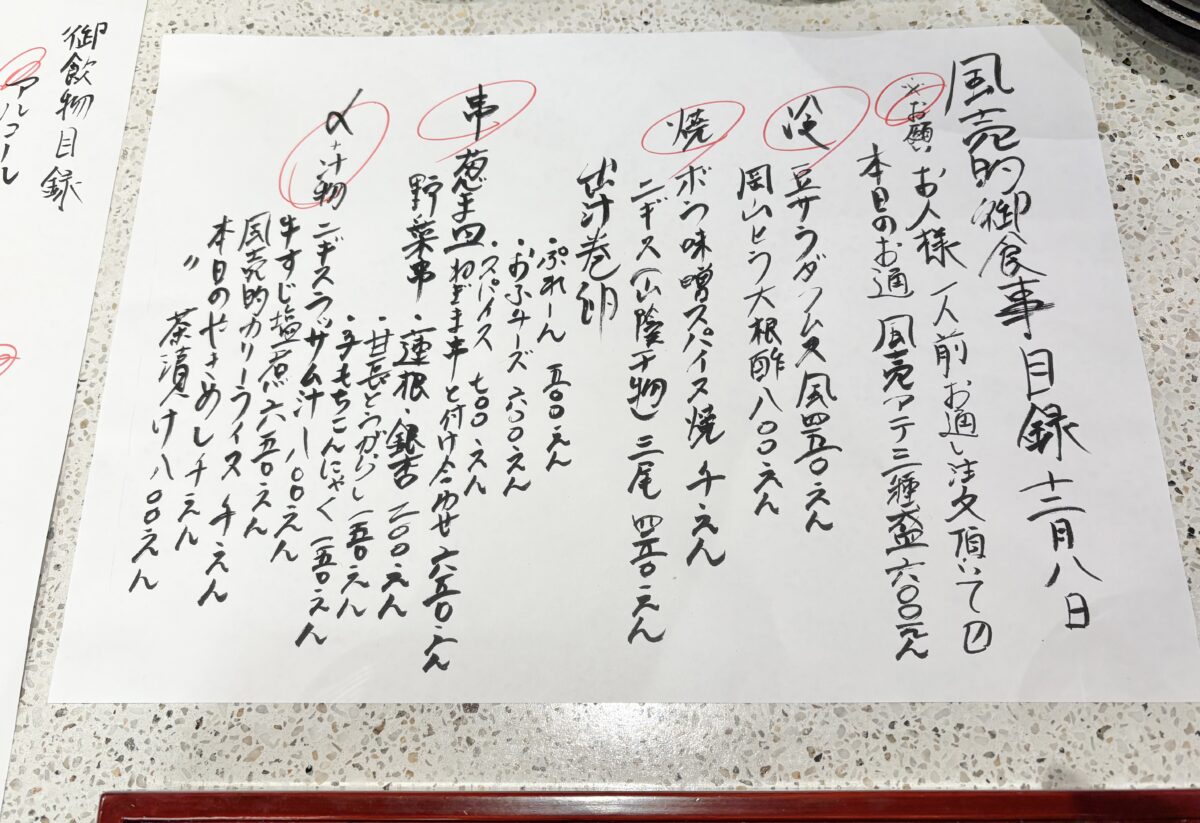 風売的御食事目録 十二月八日
※お願い お人様 一人前お通し注文頂いての
本日のお通 風売アテ三種盛 六〇〇えん
冷 豆サラダフムス風 四五〇えん
岡山ヒラ大根酢 八〇〇えん
焼 ボラ味噌スパイス焼 千えん
ニギス(山陰干物) 三尾 四五〇えん
出汁巻卵
・ぷれーん 五〇〇えん
・おふチーズ 六〇〇えん
・スパイス 七〇〇えん
串 葱ま皿 ねぎま串と付け合わせ 六五〇えん
野菜串 ・蓮根・銀杏 二〇〇えん
・甘長とうがらし 一五〇えん
・子もちこんにゃく 一五〇えん
〆+汁物 ニギスラッサム汁 八〇〇えん
牛すじ塩煮 六五〇えん
風売的カリーライス 千えん
本日のやきめし 千えん
〃 茶漬け 八〇〇えん
御飲物目録
アルコール